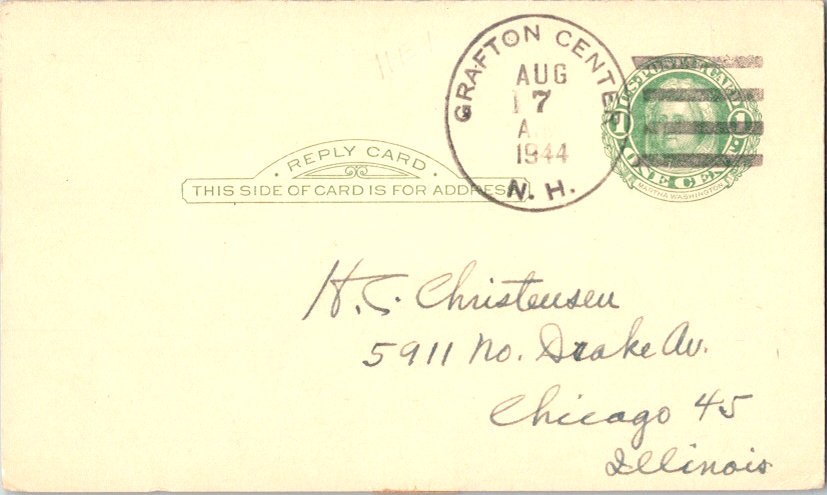 GRAFTON CENTER
AUG
17
A.
1944
N. H.
U.S. POSTAL CARD
1 1
ONE CENT
MARTHA WASHINGTON
REPLY CARD
THIS SIDE OF CARD IS FOR ADDRESS
H. C. Christensen
5911 No. Drake Av.
Chicago 45
Illinois